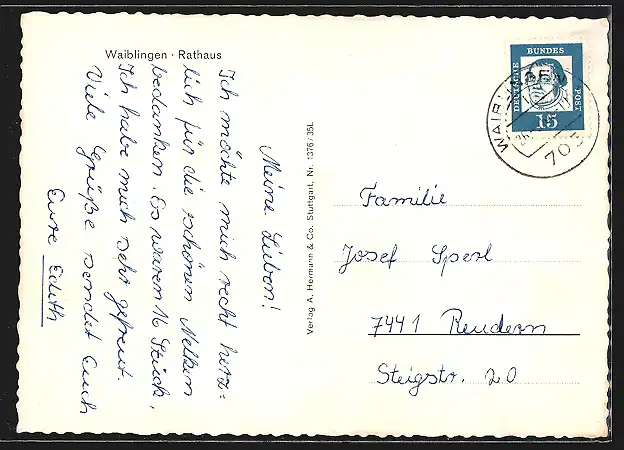 Waiblingen · Rathaus
Meine Lieben!
Ich möchte mich recht herz=
lich für die schönen Nelken
bedanken. Es waren 16 Stück.
Ich habe mich sehr gefreut.
Viele Grüße sendet Euch
Eure Edith
Verlag A. Hermann & Co. Stuttgart, Nr. 1376/35L
DEUTSCHE
BUNDES
POST
15
705
Familie
Josef Sperl
7441 Reudern
Steigstr. 20